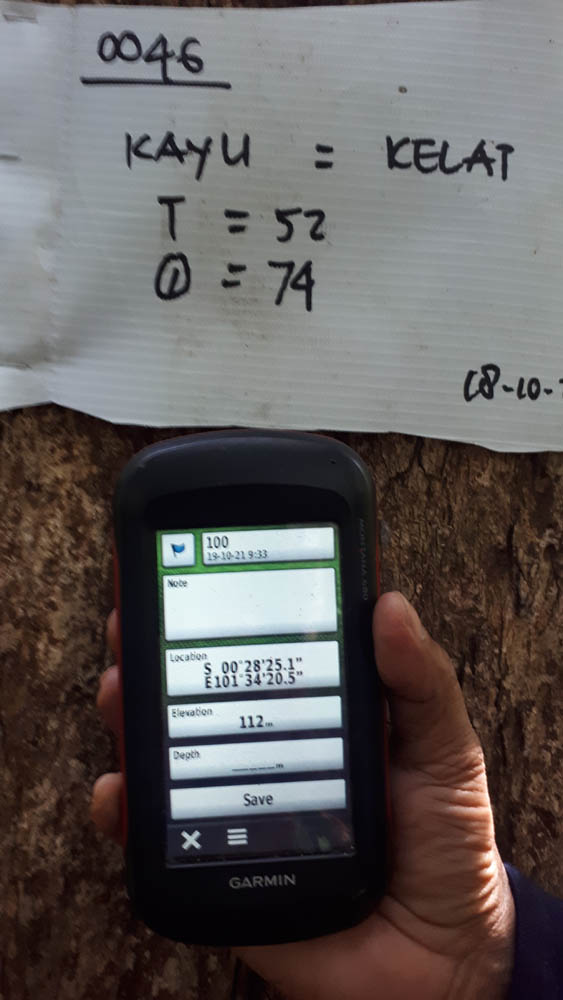 0046
KAYU = KELAT
T = 52
Ⓘ = 74
18-10-
100
19-10-21 9:33
Note
Location
S 00°28'25.1"
E101°34'20.5"
Elevation
112m
Depth
_____m
Save
GARMIN